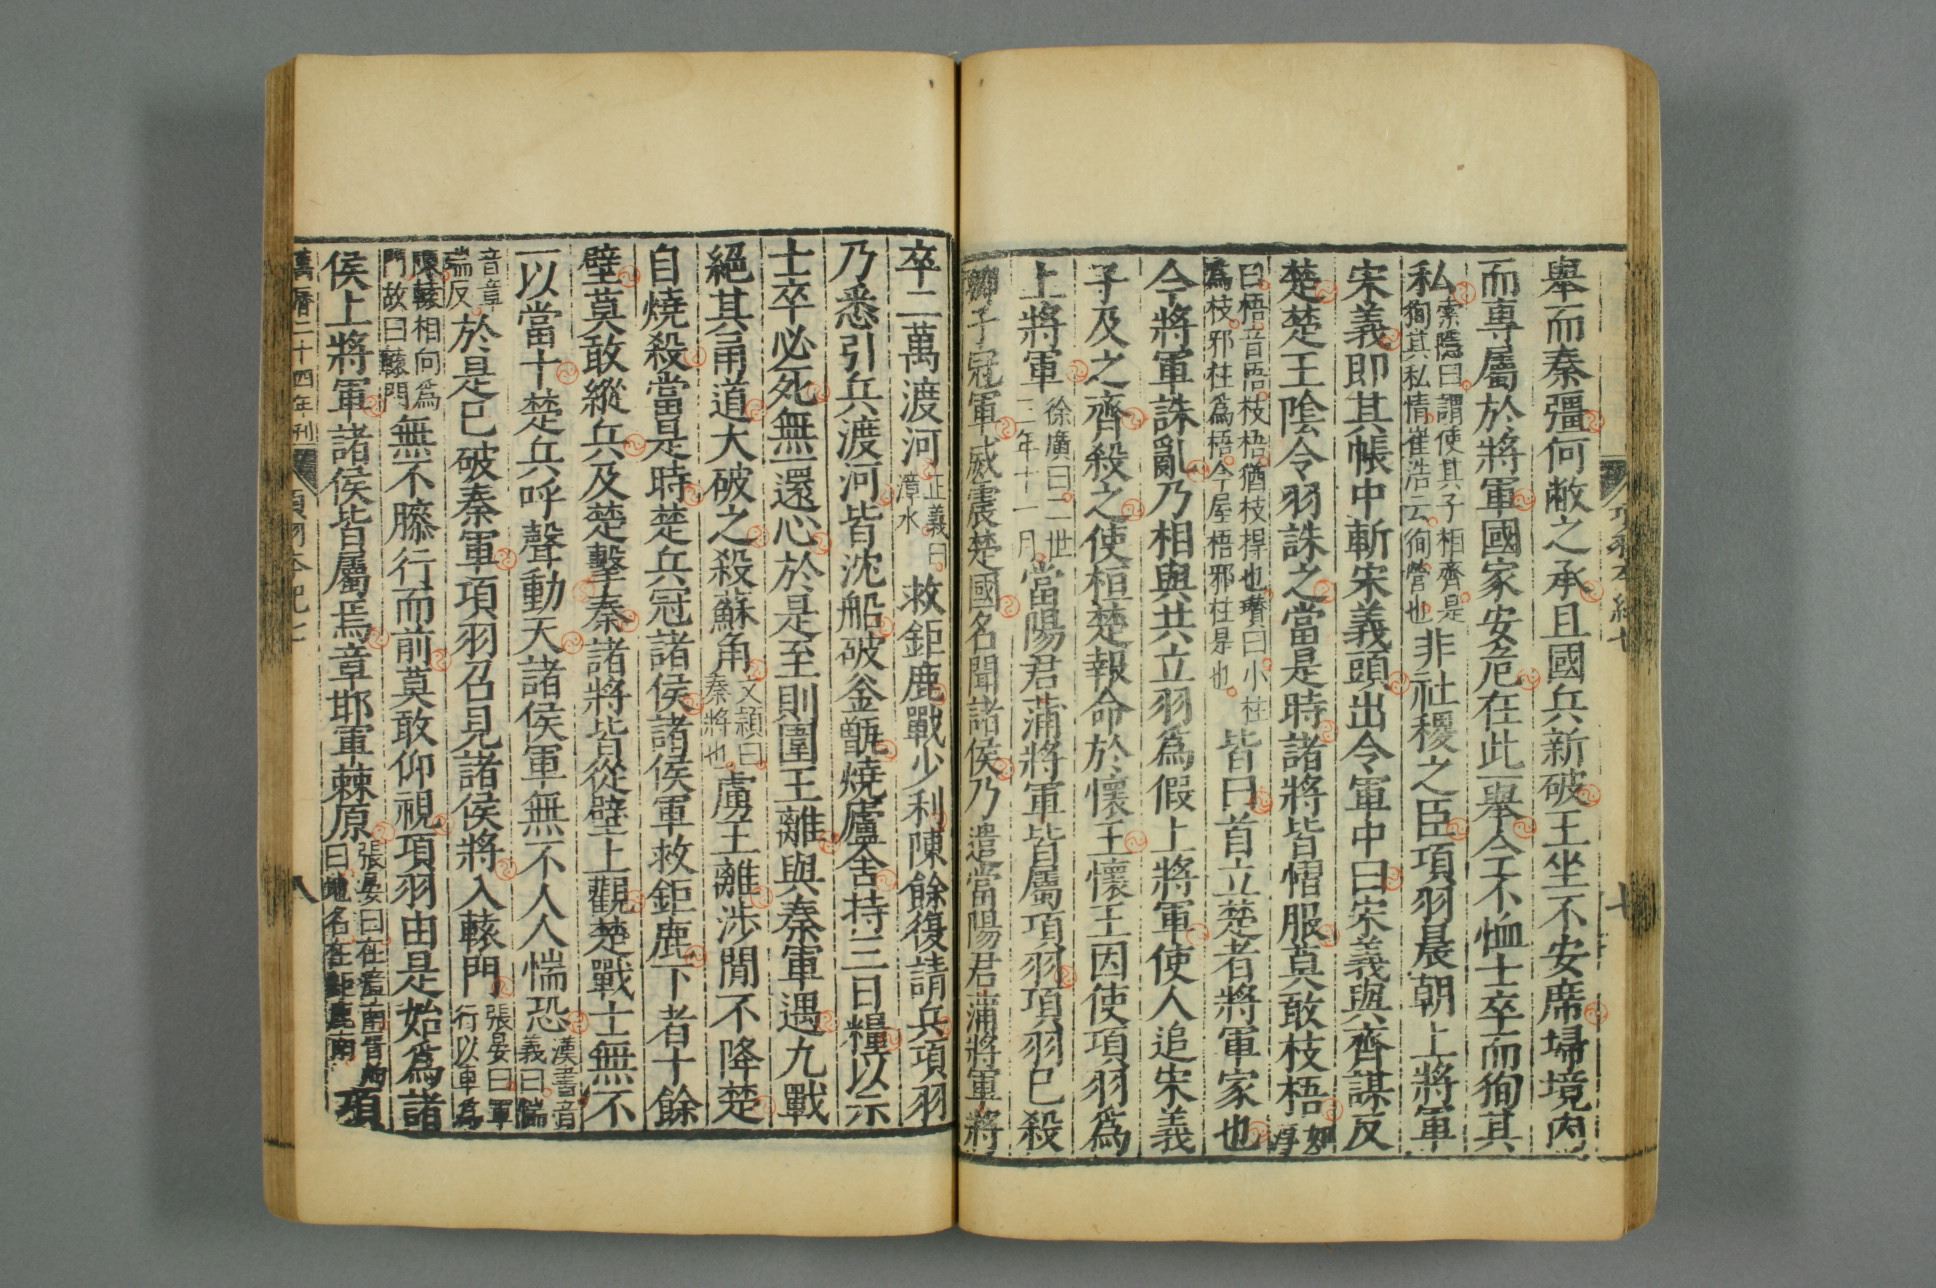 項羽本紀七
七
舉而秦彊何敝之承且國兵新破王坐不安席埽境内
而專屬於將軍國家安危在此一舉今不恤士卒而徇其
私索隱曰謂使其子相齊是徇其私情崔浩云徇營也非社稷之臣項羽晨朝上將軍
宋義即其帳中斬宋義頭出令軍中曰宋義與齊謀反
楚楚王陰令羽誅之當是時諸將皆慴服莫敢枝梧如淳
曰梧音悟枝梧猶枝捍也瓚曰小柱爲枝邪柱爲梧今屋梧邪柱是也皆曰首立楚者將軍家也
今將軍誅亂乃相與共立羽爲假上將軍使人追宋義
子及之齊殺之使桓楚報命於懷王懷王因使項羽爲
上將軍徐廣曰二世三年十一月當陽君蒲將軍皆屬項羽項羽已殺
卿子冠軍威震楚國名聞諸侯乃遣當陽君蒲將軍將
卒二萬渡河正義曰漳水救鉅鹿戰少利陳餘復請兵項羽
乃悉引兵渡河皆沈船破釡甑燒廬舍持三日糧以示
士卒必死無一還心於是至則圍王離與秦軍遇九戰
絕其甬道大破之殺蘇角文穎曰秦將也虜王離涉閒不降楚
自燒殺當是時楚兵冠諸侯諸侯軍救鉅鹿下者十餘
壁莫敢縱兵及楚擊秦諸將皆從壁上觀楚戰士無不
一以當十楚兵呼聲動天諸侯軍無不人人惴恐漢書音義曰惴
音章瑞反於是已破秦軍項羽召見諸侯將入轅門張晏曰軍行以車爲
陳轅相向爲門故曰轅門無不膝行而前莫敢仰視項羽由是始爲諸
侯上將軍諸侯皆屬焉章邯軍棘原張晏曰在漳南晉灼曰地名在鉅鹿南項
萬曆二十四年刊
項羽本紀七
八